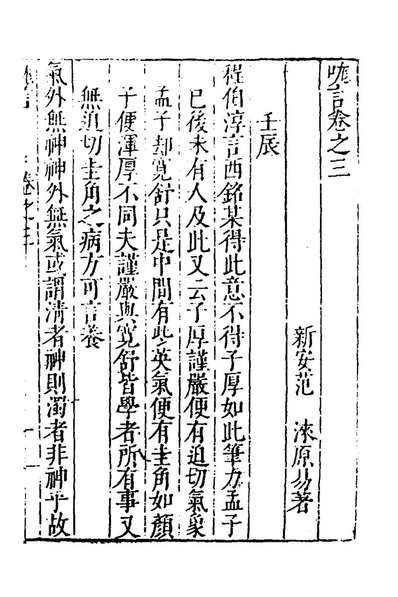 囈言卷之三
新安范　淶原易著
壬辰
程伯淳言西銘某得此意不得子厚如此筆力孟子
已後未有人及此又云子厚謹嚴便有迫切氣象
孟子却寬舒只是中間有些英氣便有圭角如顏
子便渾厚不同夫謹嚴與寬舒皆學者所有事又
無迫切圭角之病方可言養
氣外無神神外無氣或謂清者神則濁者非神乎故
卷之三